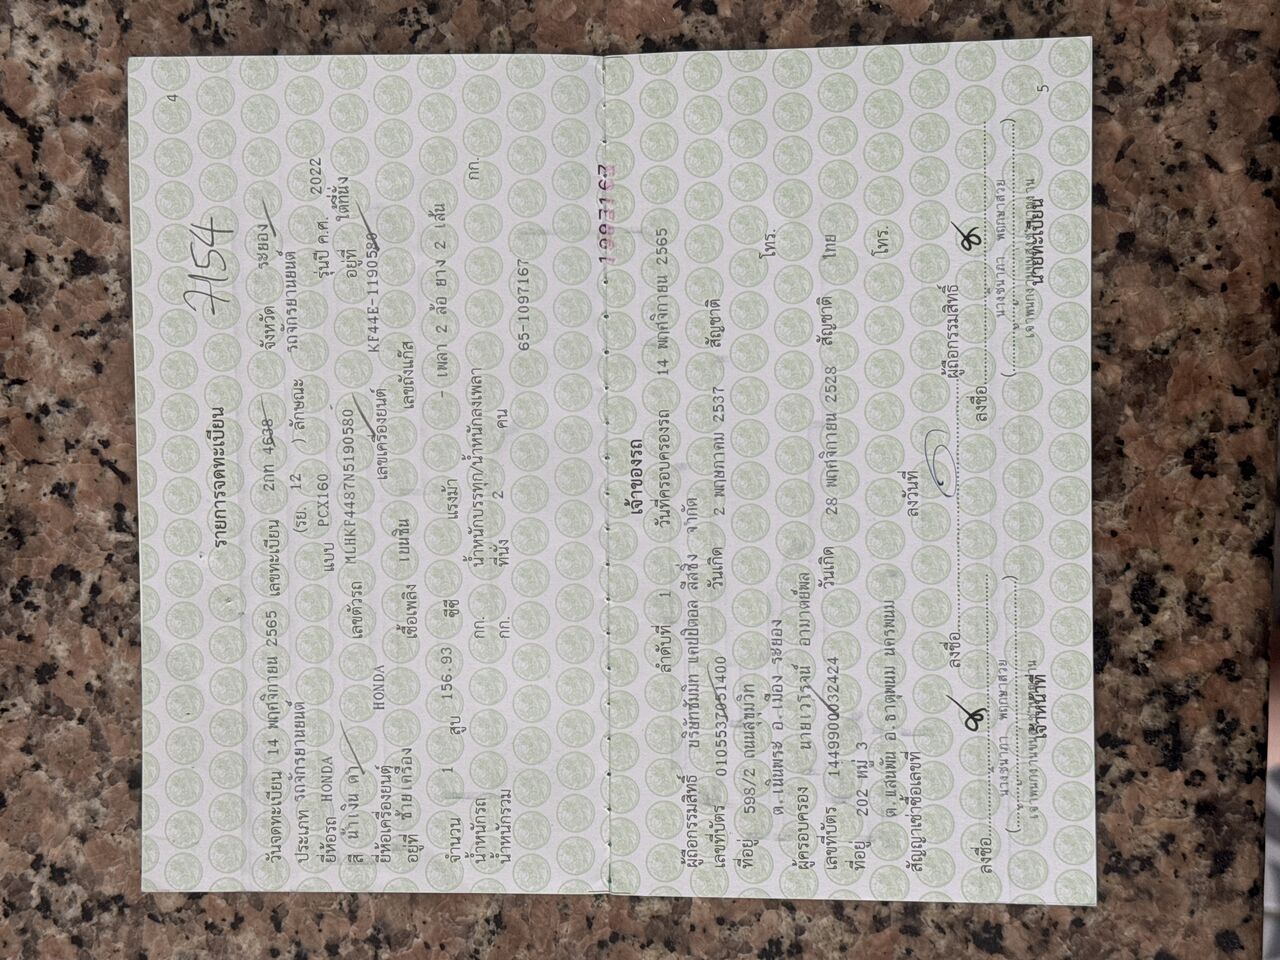 4
7154
รายการจดทะเบียน
วันจดทะเบียน 14 พฤศจิกายน 2565 เลขทะเบียน 2กท 4638 จังหวัด ระยอง
ประเภท รถจักรยานยนต์ (รย. 12 ) ลักษณะ รถจักรยานยนต์
ยี่ห้อรถ HONDA แบบ PCX160 รุ่นปี ค.ศ. 2022
สี น้ำเงิน ดำ เลขตัวรถ MLHKF4487N5190580 อยู่ที่ ใต้ที่นั่ง
ยี่ห้อเครื่องยนต์ HONDA เลขเครื่องยนต์ KF44E-1190580
อยู่ที่ ซ้ายเครื่อง เชื้อเพลิง เบนซิน เลขถังแก๊ส
จำนวน 1 สูบ 156.93 ซีซี แรงม้า - เพลา 2 ล้อ ยาง 2 เส้น
น้ำหนักรถ กก. น้ำหนักบรรทุก/น้ำหนักลงเพลา กก.
น้ำหนักรวม กก. ที่นั่ง 2 คน
65-1097167
เจ้าของรถ
ลำดับที่ 1 วันที่ครอบครองรถ 14 พฤศจิกายน 2565
ผู้ถือกรรมสิทธิ์ บริษัทซัมมิท แคปปิตอล ลีสซิ่ง จำกัด
เลขที่บัตร 0105537051400 วันเกิด 2 พฤษภาคม 2537 สัญชาติ
ที่อยู่ 598/2 ถนนสุขุมวิท
ต.เนินพระ อ.เมือง ระยอง โทร.
ผู้ครอบครอง นายเวโรจน์ อามาตย์พล
เลขที่บัตร 1449900032424 วันเกิด 28 พฤศจิกายน 2528 สัญชาติ ไทย
ที่อยู่ 202 หมู่ 3
ต.แสนพัน อ.ธาตุพนม นครพนม โทร.
สัญญาเช่าซื้อเลขที่ ลงวันที่
ลงชื่อ ผู้ถือกรรมสิทธิ์
ลงชื่อ ลงชื่อ
นางชนาภา พฤกษาสวย นางชนาภา พฤกษาสวย
( ) ( )
เจ้าหน้าที่ นายทะเบียน
5